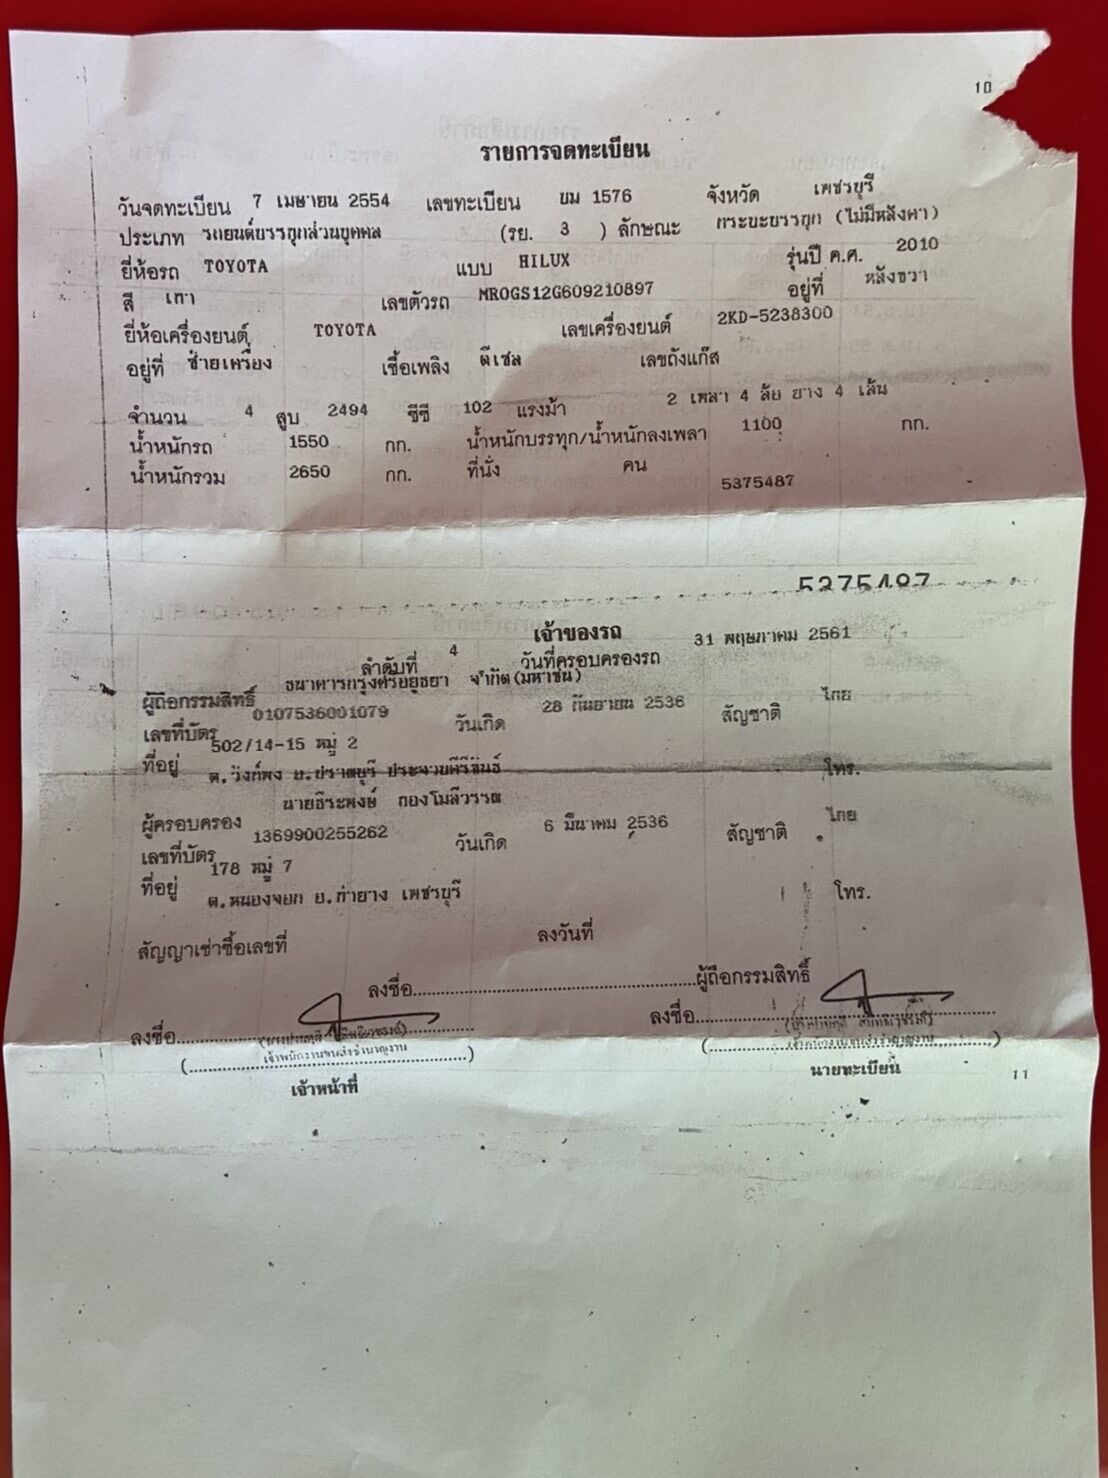 10
รายการจดทะเบียน
วันจดทะเบียน 7 เมษายน 2554 เลขทะเบียน บม 1576 จังหวัด เพชรบุรี
ประเภท รถยนต์บรรทุกส่วนบุคคล (รย. 3 ) ลักษณะ กระบะบรรทุก (ไม่มีหลังคา)
ยี่ห้อรถ TOYOTA แบบ HILUX รุ่นปี ค.ศ. 2010
สี เทา เลขตัวรถ MROGS12G609210897 อยู่ที่ หลังขวา
ยี่ห้อเครื่องยนต์ TOYOTA เลขเครื่องยนต์ 2KD-5238300
อยู่ที่ ซ้ายเครื่อง เชื้อเพลิง ดีเซล เลขถังแก๊ส
จำนวน 4 สูบ 2494 ซีซี 102 แรงม้า 2 เพลา 4 ล้อ ยาง 4 เส้น
น้ำหนักรถ 1550 กก. น้ำหนักบรรทุก/น้ำหนักลงเพลา 1100 กก.
น้ำหนักรวม 2650 กก. ที่นั่ง คน
5375487
5375487
เจ้าของรถ
ลำดับที่ 4 วันที่ครอบครองรถ 31 พฤษภาคม 2561
ธนาคารกรุงศรีอยุธยา จำกัด(มหาชน)
ผู้ถือกรรมสิทธิ์
เลขที่บัตร 0107536001079 วันเกิด 28 กันยายน 2536 สัญชาติ ไทย
ที่อยู่ 502/14-15 หมู่ 2
ต.วังก์พง อ.ปราณบุรี ประจวบคีรีขันธ์ โทร.
นายธีระพงษ์ ทองโมลีวรรณ
ผู้ครอบครอง
เลขที่บัตร 1369900255262 วันเกิด 6 มีนาคม 2536 สัญชาติ ไทย
ที่อยู่ 178 หมู่ 7
ต.หนองจอก อ.ท่ายาง เพชรบุรี โทร.
สัญญาเช่าซื้อเลขที่ ลงวันที่
ลงชื่อ........................................ผู้ถือกรรมสิทธิ์
ลงชื่อ........................................ ลงชื่อ........................................
เจ้าพนักงานขนส่งชำนาญงาน
(........................................) (........................................)
เจ้าหน้าที่ นายทะเบียน
11